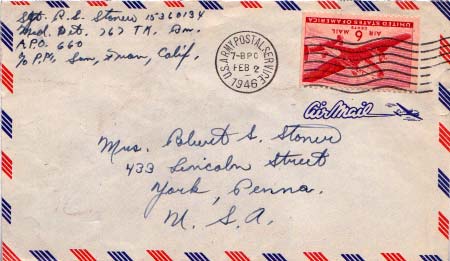 Sgt. R. S. Stoner 15360134
Med. Det. 767 TK. Bn.
A.P.O. 660
c/o P.M., San Fran, Calif.
U.S. ARMY POSTAL SERVICE
7-B PO
FEB 2
1946
UNITED STATES OF AMERICA
6 CENTS
AIR MAIL
Air Mail
Mrs. Bluert S. Stoner
433 Lincoln Street
York, Penna.
U. S. A.